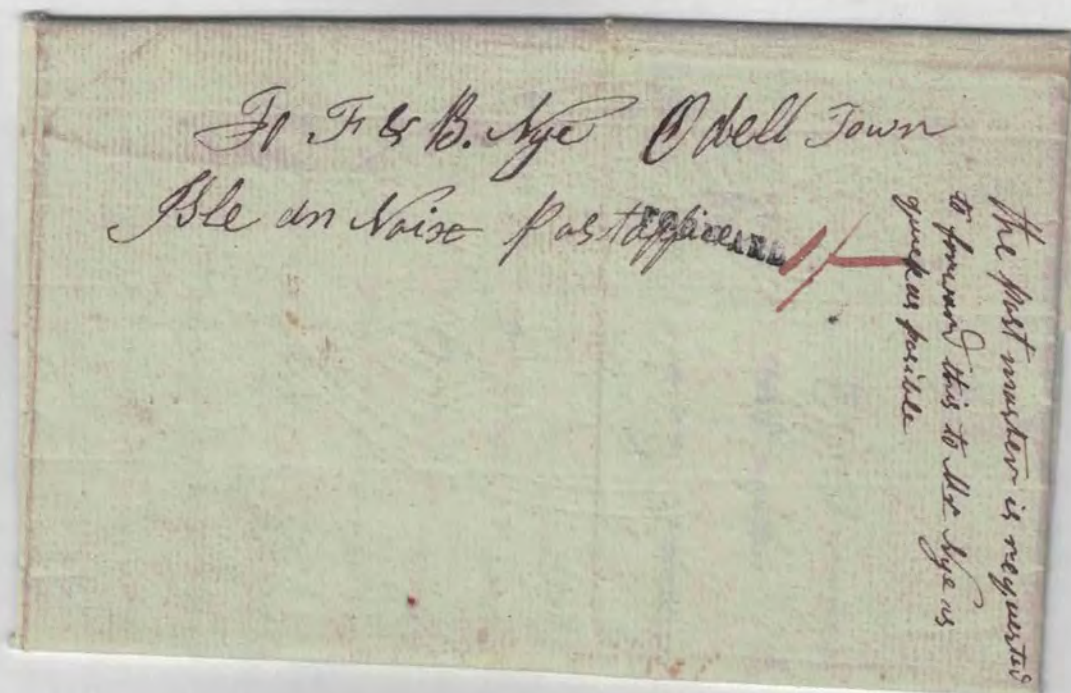 To F & B. Nye Odell Town
Isle au Noix Post office
1/-
The post master is requested
to forward this to Mr Nye as
quick as posible